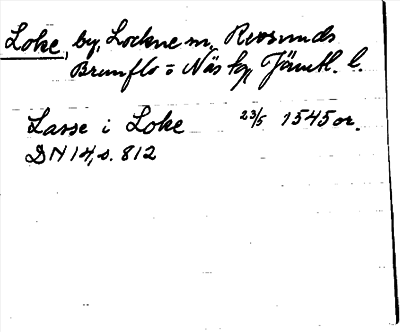 Loke, by, Lockne sn, Revsunds
Brunflo o Näs tg, Jämtl. l.
Lasse i Loke 23/5 1545 or.
DN 14, s. 812